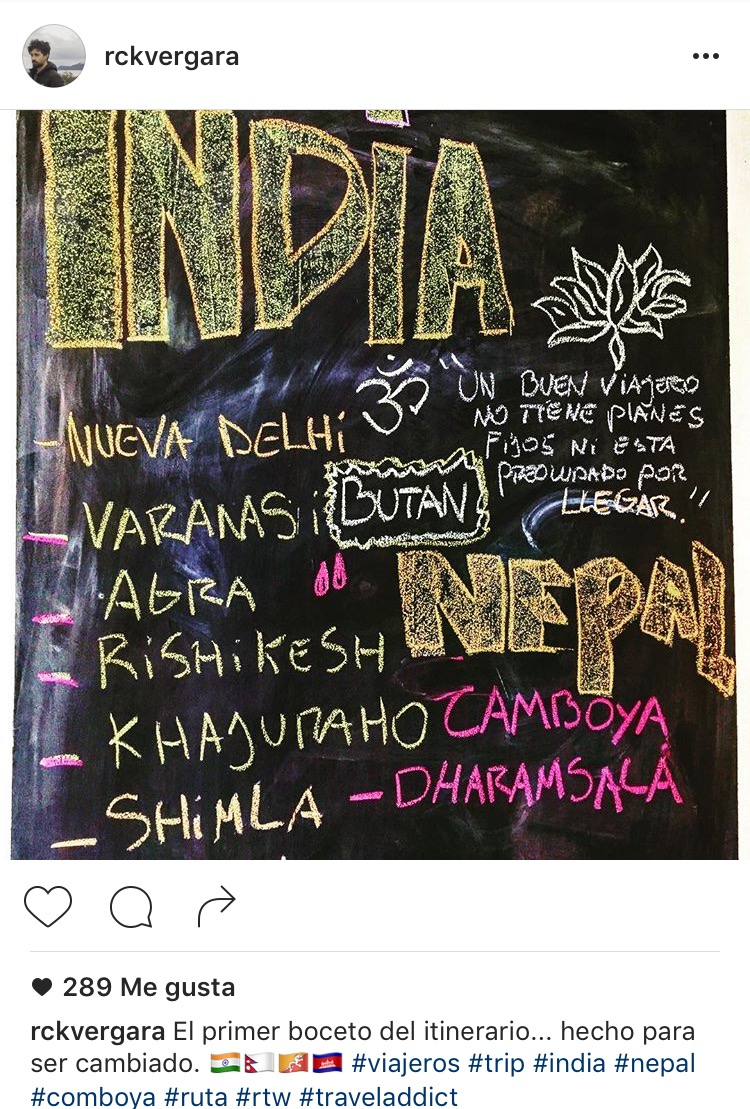 rckvergara
INDiA
"UN BUEN ViAJERO
NO TIENE PLANES
FIJOS NI ESTA
PREOCUPADO POR
LLEGAR."
ॐ
-NUEVA DELHi
BUTAN
- VARANASi
- AGRA
NEPAL
- RiSHiKESH
- KHAJURAHO
CAMBOYA
- DHARAMSALA
- SHiMLA
289 Me gusta
rckvergara El primer boceto del itinerario... hecho para
ser cambiado. 🇮🇳🇳🇵🇧🇹🇰🇭 #viajeros #trip #india #nepal
#comboya #ruta #rtw #traveladdict